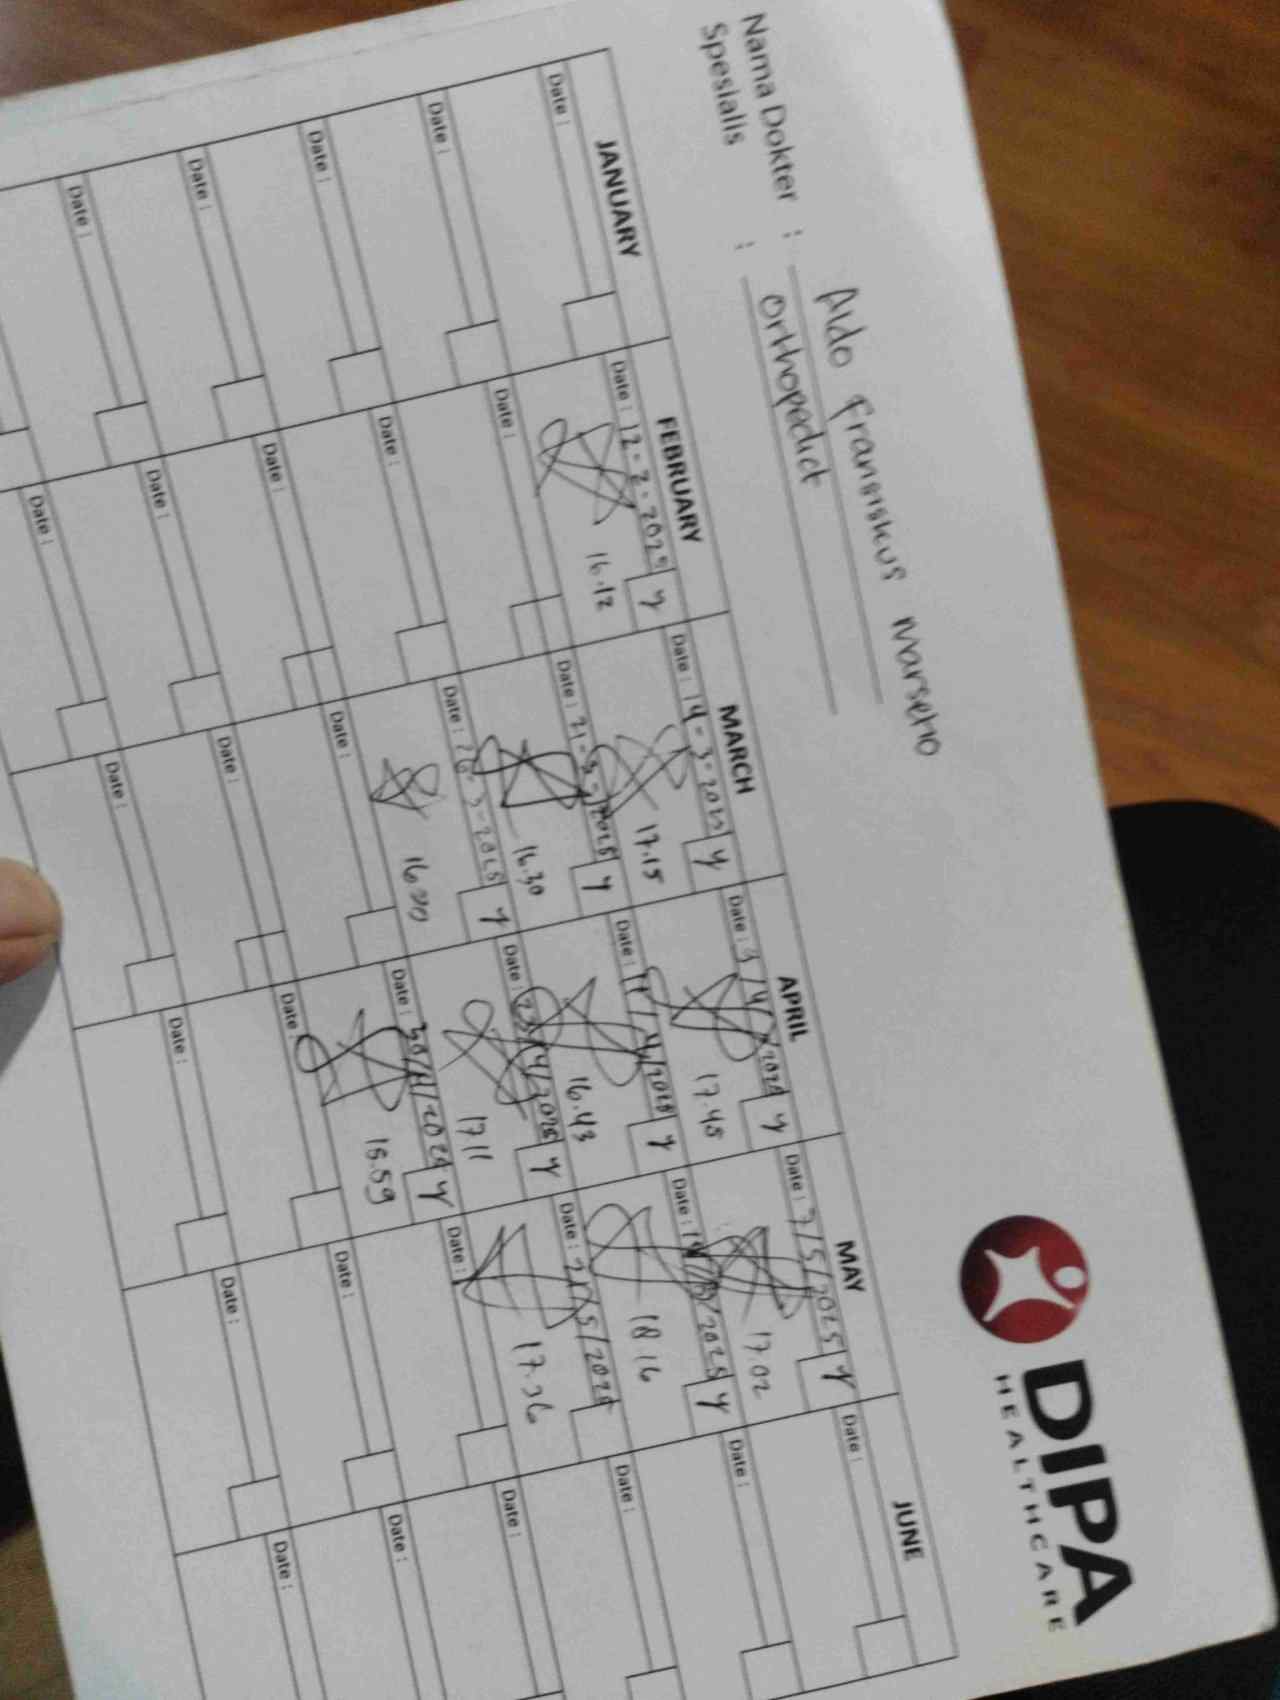 DIPA
HEALTHCARE
Nama Dokter : Aldo Fransiskus Marseno
Spesialis : Orthopedict
JANUARY
FEBRUARY
MARCH
APRIL
MAY
JUNE
Date :
Date : 12-2-2025 y
16.12
Date : 14-3-2025 y
17.15
Date : 9/4/2025 y
17.45
Date : 7/5/2025 y
17.02
Date :
Date :
Date :
Date : 21-3-2025 y
16.30
Date : 17/4/2025 y
16.43
Date : 14/5/2025 y
18.16
Date :
Date :
Date :
Date : 26-3-2025 y
16.00
Date : 23/4/2025 y
17.11
Date : 21/5/2025
17.36
Date :
Date :
Date :
Date :
Date : 30/4/2025 y
15.59
Date :
Date :
Date :
Date :
Date :
Date :
Date :
Date :
Date :
Date :
Date :
Date :
Date :